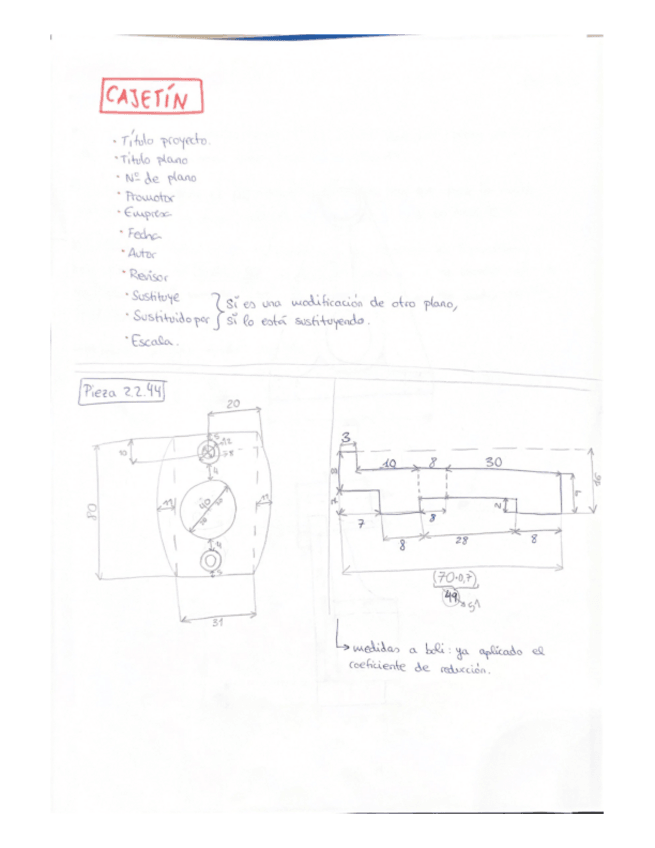 CAJETÍN
· Título proyecto.
· Título plano
· Nº de plano
· Promotor
· Empresa
· Fecha
· Autor
· Revisor
· Sustituye
· Sustituido por
Si es una modificación de otro plano,
si lo está sustituyendo.
· Escala.
Pieza 2.2.44
20
5
4
80
11
40
11
4
5
31
3
10 8 30
7
8
2
8 28 8
(70·0,7)
49
medidas a boli: ya aplicado el
coeficiente de reducción.